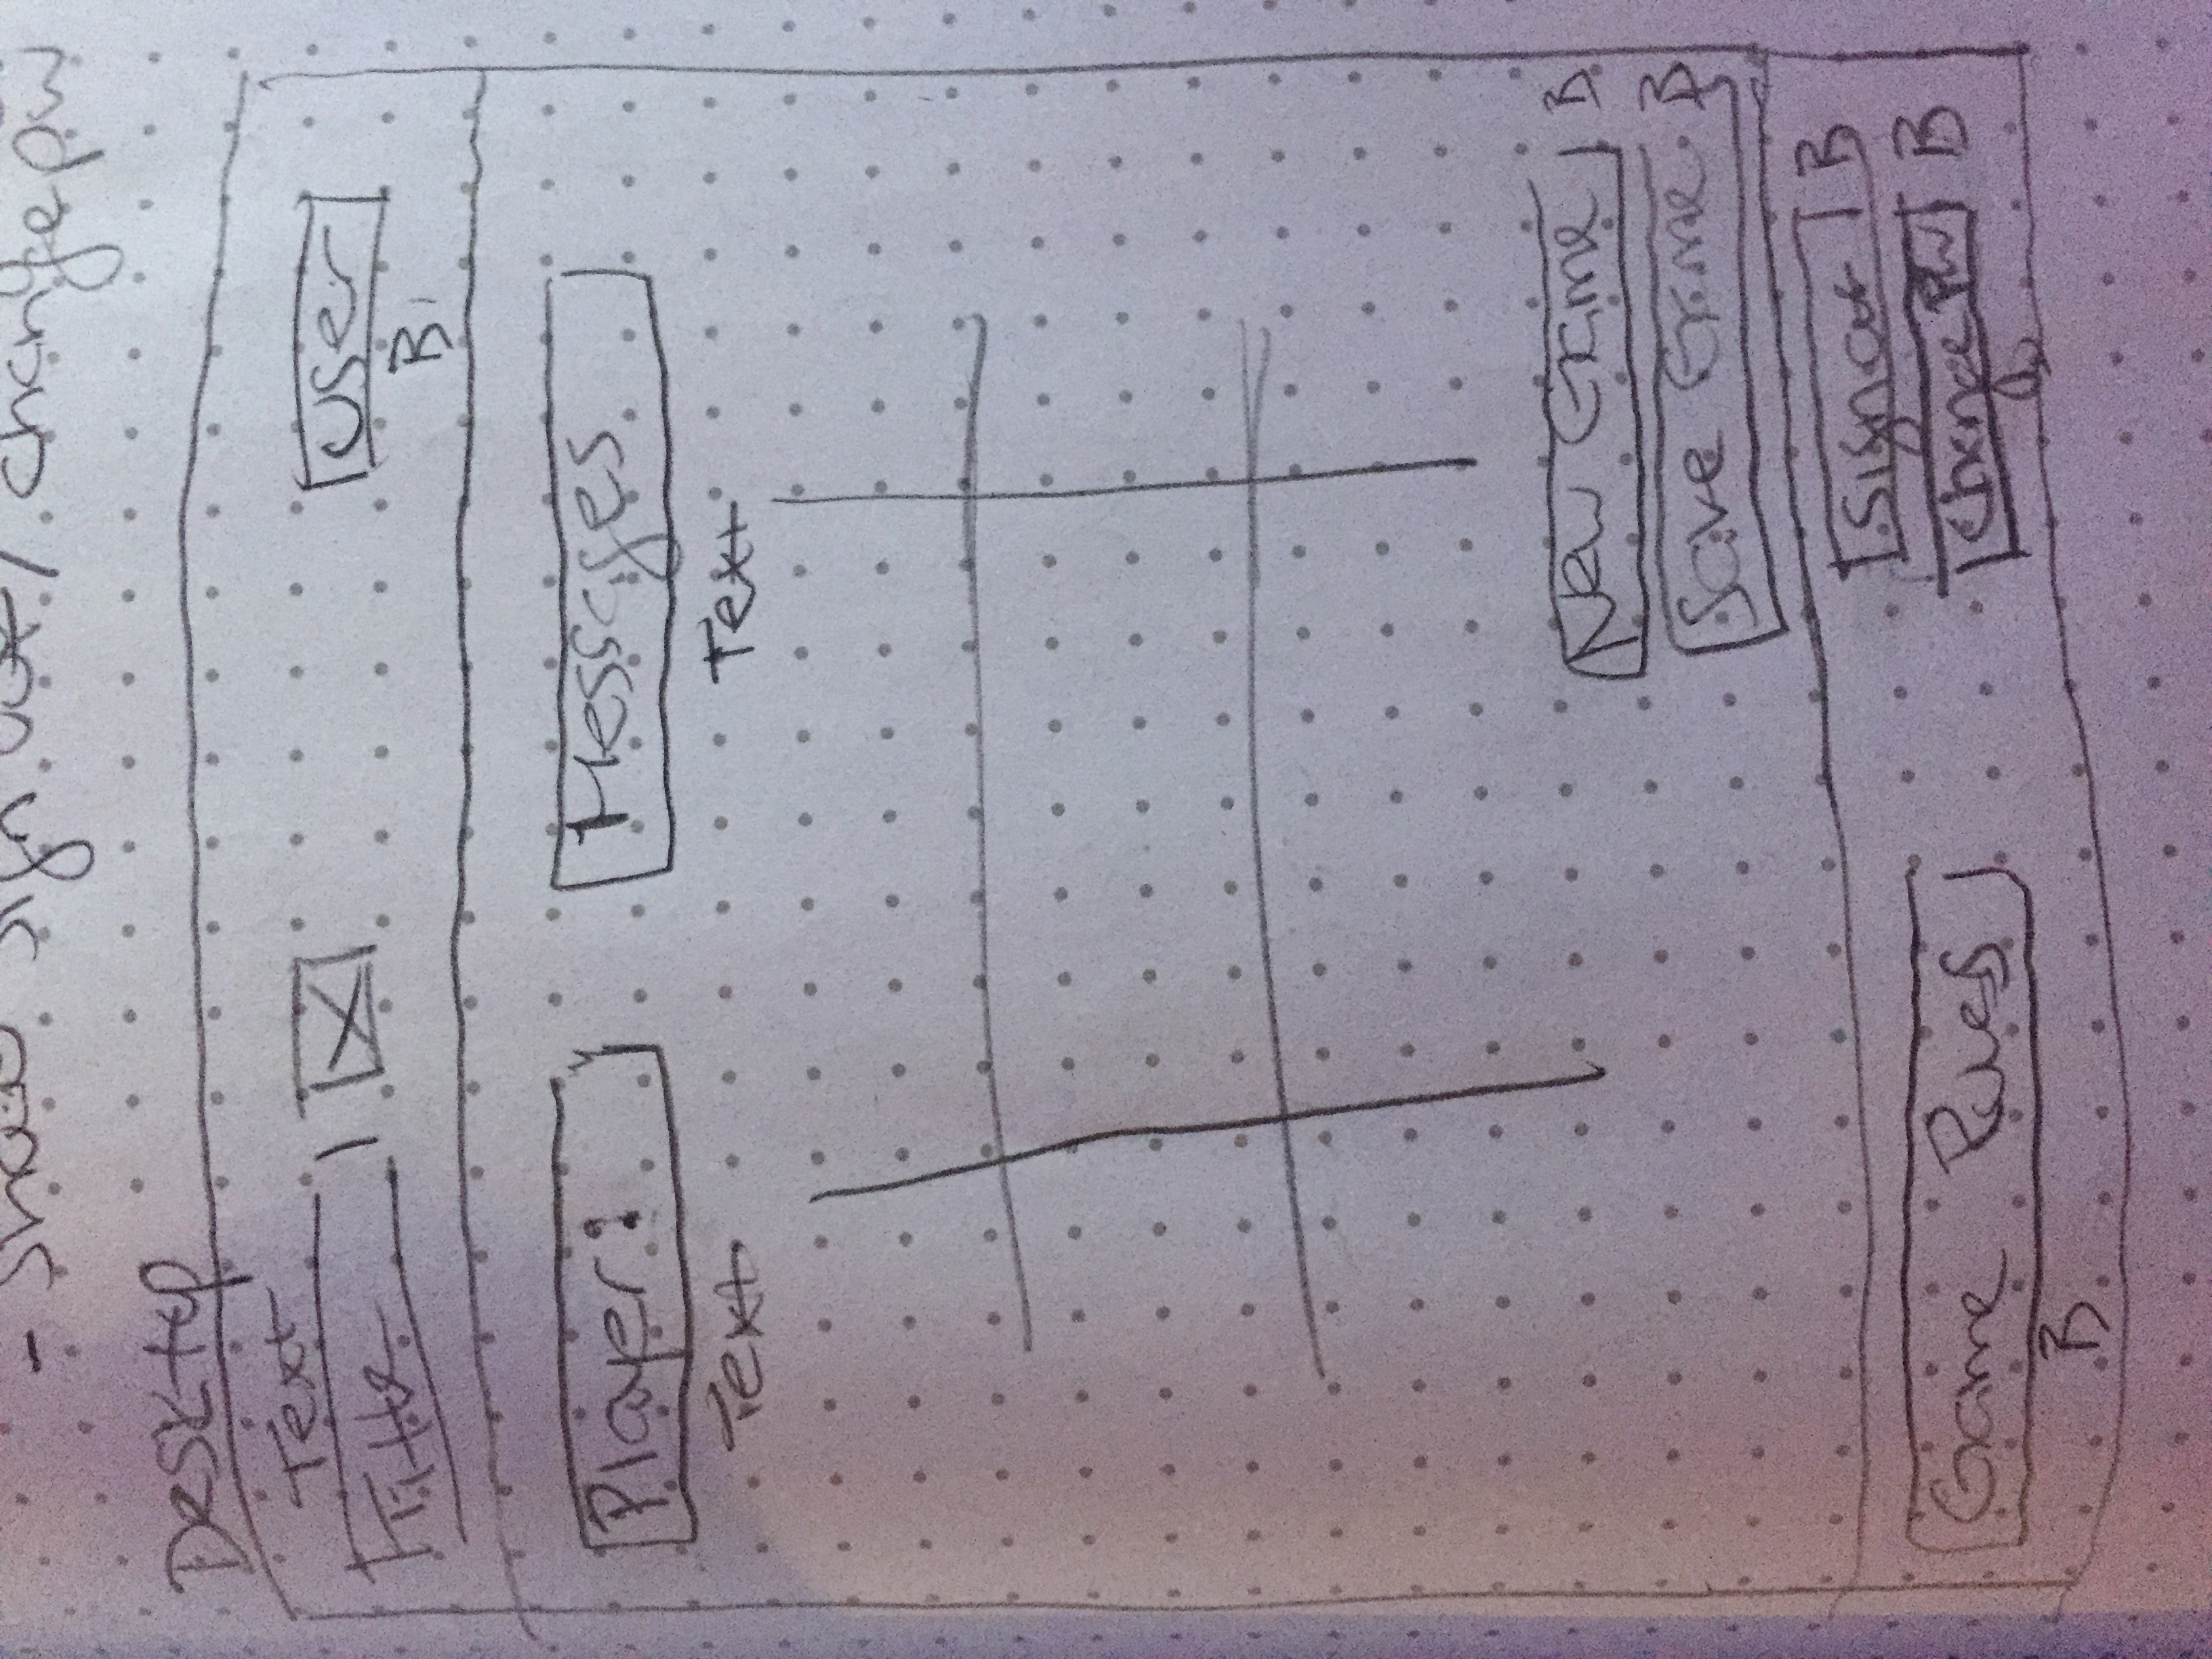 - Show sign out / change pw
Desktop
Text
Title
User
B
Player:
Messages
Text
Text
New Game B
Save Game B
Sign out B
Change PW B
Game Rules
B